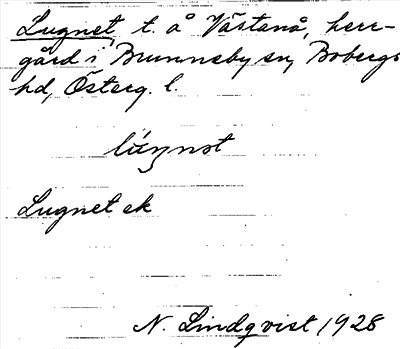 Lugnet, t. å Västanå, herr-
gård i Brunnsby sn, Bobergs
hd, Österg. l.
Lugnet ek
N. Lindqvist 1928